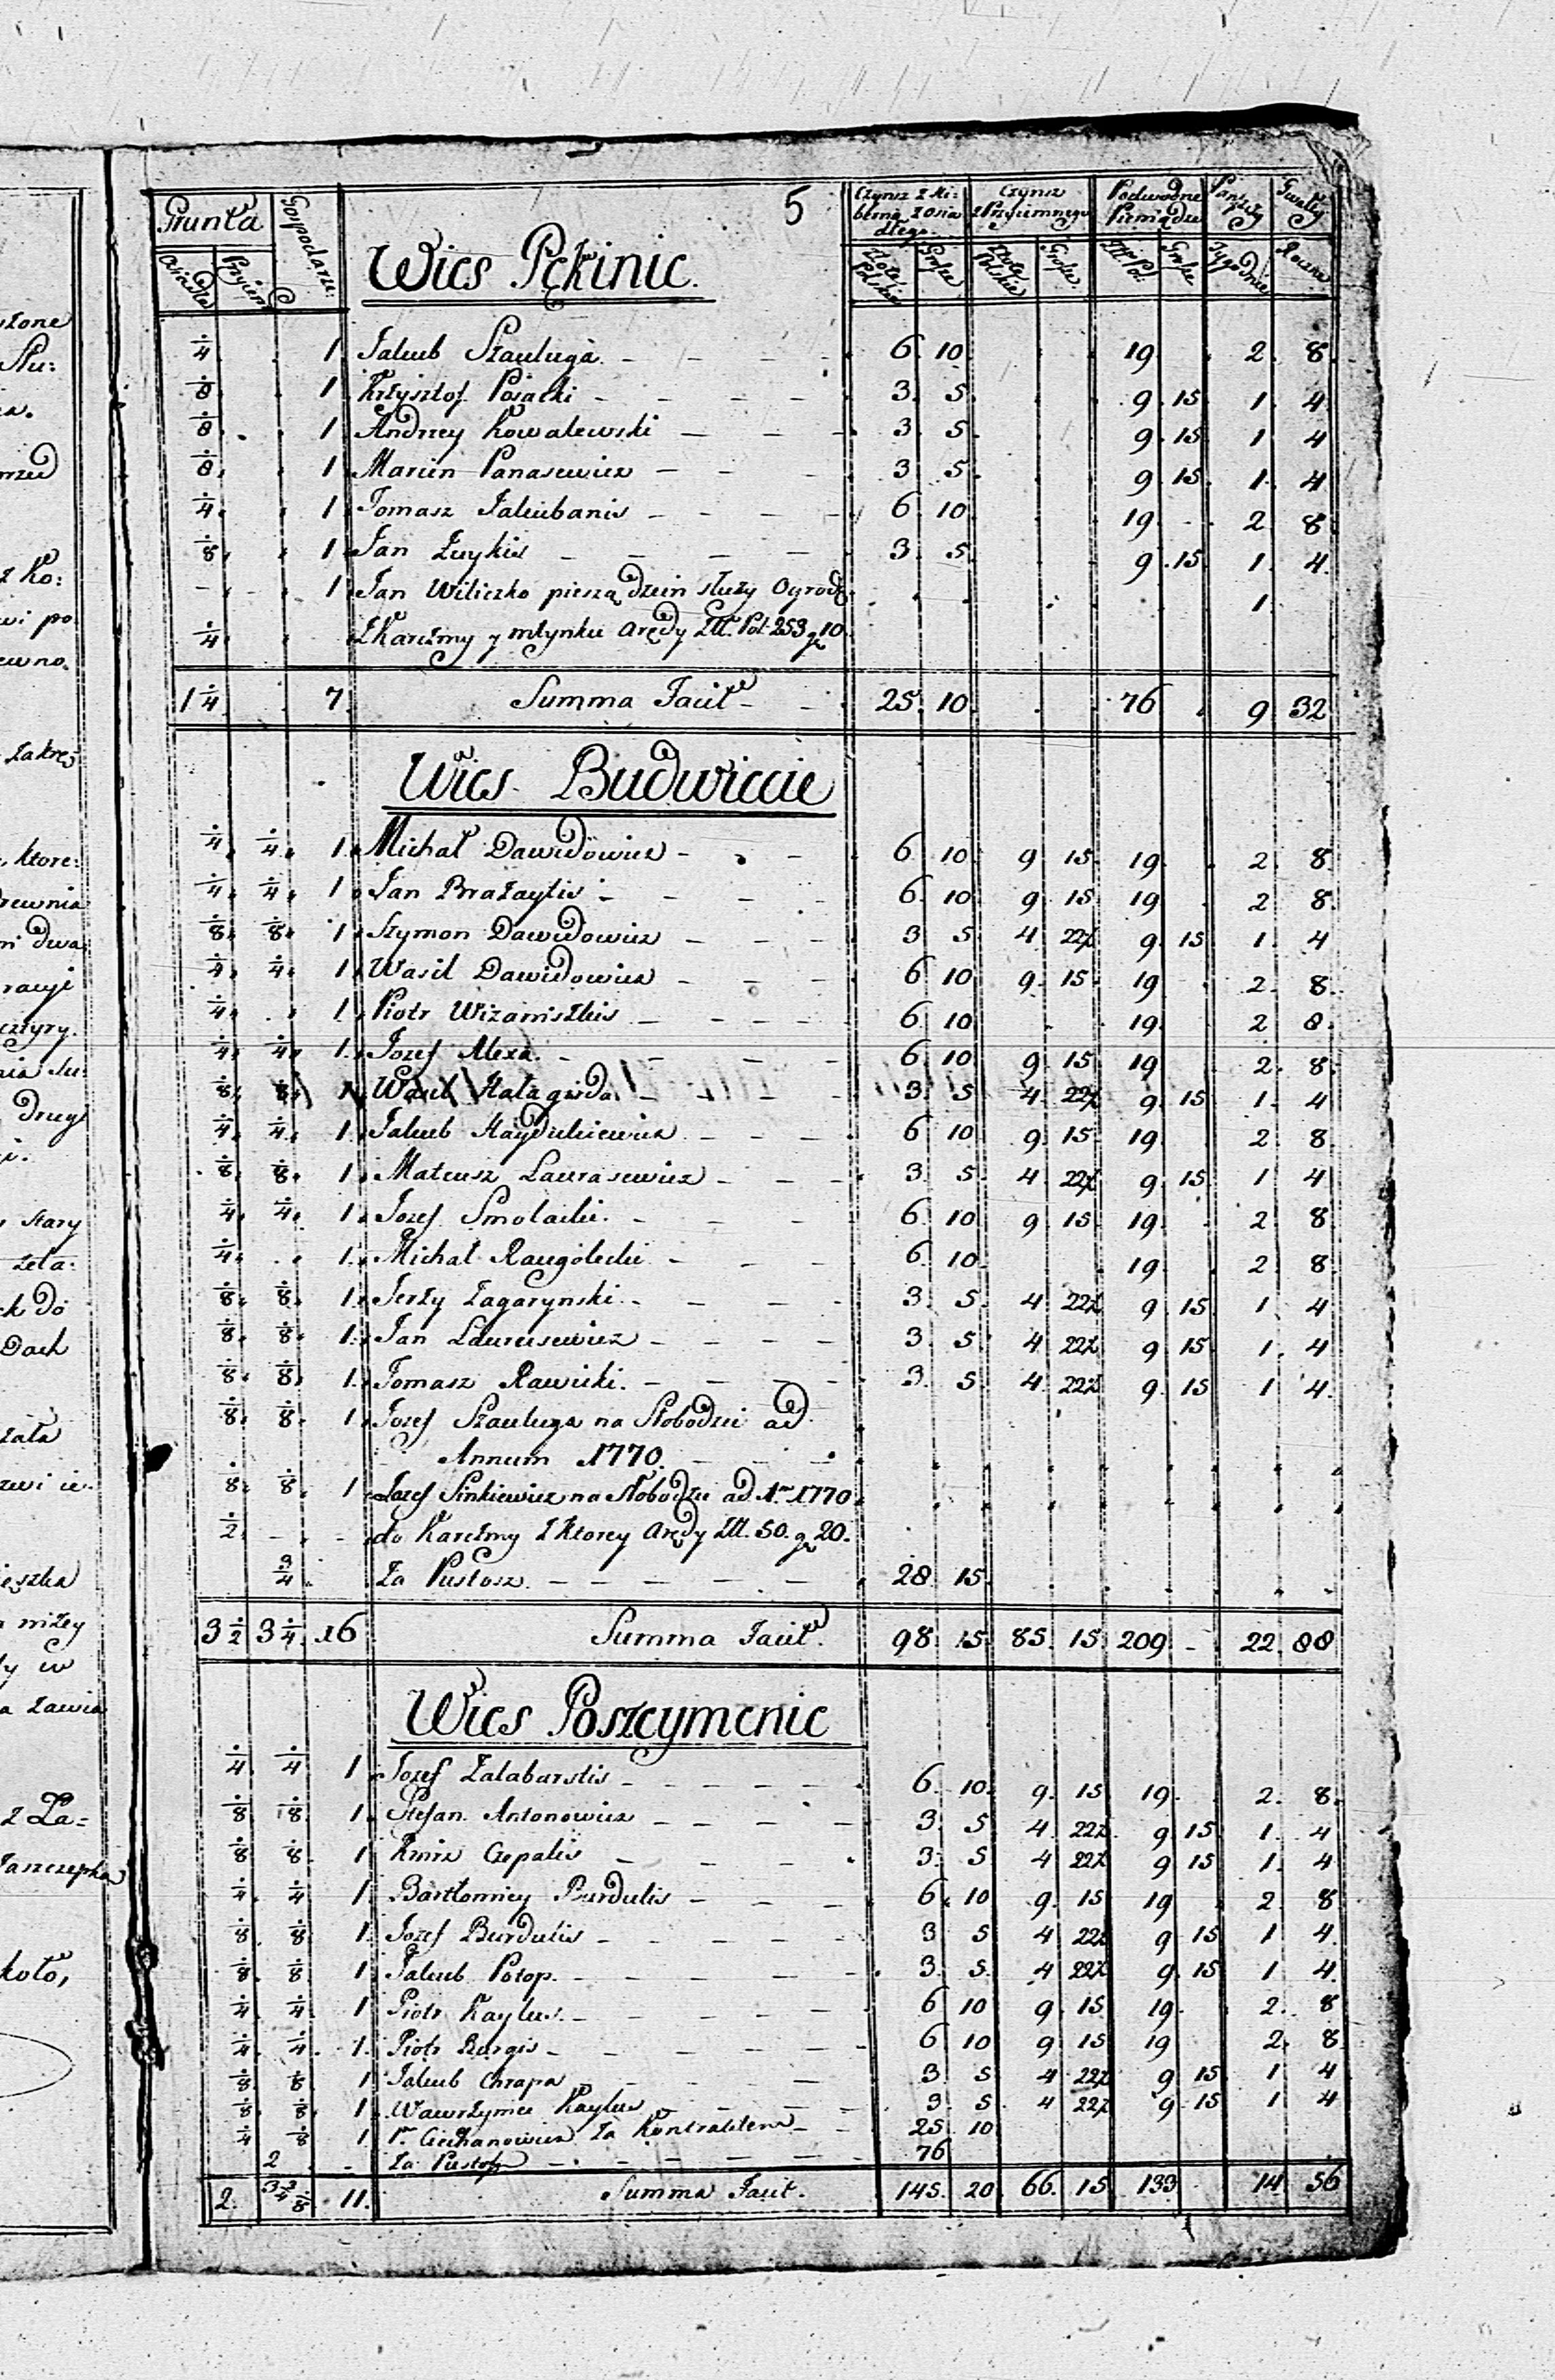 zone
Słu:
rzed
z Ko:
wi po
ewno.
zakręs
, które:
rewnia
m dwa
racyi
cztyry.
nia słu
drugi
stary
żela:
k do
Dach
zała
zwi ie.
eszka
niżey
y w
a zawia
z Za=
Janczepka
koło,
5
Grunta Gospodarze. Wies Pękinie. Czynsz z Mi= Czynsz Podwodne Pańszczy Gwałty
błema zosia z Przyiemnego Pieniądze
dłego
Osiadła Przyiem Złote Polskie Grosze Złote Polskie Grosze Złł. Pol. Grosze Tygodnie Roczne
1/4 . 1 Jakub Szauługa. - - - 6. 10 19 . 2 8
1/8 . 1 Krzysztof Posacki - - - 3. 5 9. 15 1. 4
1/8 . 1 Andrzey Kowalewski - - - 3. 5 9. 15 1 4
1/8 . 1 Marcin Panasewicz - - - 3 5 9. 15 1. 4
1/4 . 1 Tomasz Jakubanis - - - 6. 10 19 . 2 8
1/8 . 1 Jan Zuykis - - - 3. 5 9. 15 1. 4.
- . 1 Jan Wiliczko pieszą dzein służy Ogrod. . . . . 1.
1/4 . z Karczmy y młynku Arędy Złł. Pol. 253 g 10.
1 1/4 . 7. Summa Facit - 25. 10 . . 76 . 9 32
Wies Budwiecie
1/4. 1/4. 1. Michał Dawidowicz - - - 6 10 9 15 19 . 2 8
1/4. 1/4. 1 Jan Brazaytis - - - 6. 10 9 15 19 . 2 8.
1/8. 1/8. 1. Szymon Dawidowicz - - - 3 5 4 22½ 9. 15 1. 4
1/4. 1/4. 1. Wasil Dawidowicz - - - 6 10 9. 15 19 2. 8.
1/4. . 1. Piotr Wizamszkis - - - 6. 10 . . 19. 2 8.
1/4. 1/4. 1. Jozef Alexa. - - - 6. 10 9 15 19 2. 8.
1/8. 1/8. 1. Wasil Hałagieda - - - 3. 5 4. 22½ 9 15 1. 4
1/4. 1/4. 1. Jakub Haydukiewicz - - - 6 10 9. 15 19. 2 8.
1/8. 1/8. 1. Mateusz Laurasewicz - - - 3. 5 4 22½ 9 15 1 4
1/4. 1/4. 1. Jozef Smolacki. - - - 6. 10 9 15 19. . 2 8
1/4. . . 1. Michał Raugolecki - - - 6. 10. 19. . 2. 8
1/8. 1/8. 1. Jerzy Zagarynski. - - - 3. 5. 4 22½ 9 15 1. 4
1/8. 1/8. 1. Jan Laurasewicz - - - 3. 5. 4 22½ 9 15 1. 4
1/8. 1/8. 1. Tomasz Rawicki. - - - 3. 5 4. 22½ 9. 15 1 4.
1/8. 1/8. 1. Jozef Szauługa na Słobodzie ad
Annum 1770. - - -
1/8. 1/8. 1 Jozef Sinkiewicz na Słobodzie ad A. 1770
1/2. - . - do Karczmy z ktorey Arędy Złł. 50. g 20.
3/4. Za Pustosz. - - - 28. 15.
3 1/2 3 1/4 16 Summa Facit. 98. 15 85. 15 209 - 22. 88
Wies Poszeymenie
1/4 1/4 1 Jozef Zalabarstis - - - 6. 10. 9. 15 19. 2. 8.
1/8. 1/8. 1. Stefan Antonowicz - - - 3. 5 4. 22½ 9 15 1. 4
1/8 1/8. 1 Kmis Czepalis - - - 3. 5 4 22½ 9 15 1. 4
1/4. 1/4 1. Bartłomiey Burdulis - - - 6. 10 9. 15 19 . 2. 8
1/8. 1/8. 1. Jozef Burdulis - - - 3 5 4 22½ 9 15 1 4.
1/8. 1/8. 1 Jakub Potop. - - - 3. 5. 4 22½ 9. 15 1 4.
1/4. 1/4. 1 Piotr Kaylus. - - - 6 10 9. 15 19 2. 8
1/4. 1/4. 1. Piotr Burgis - - - 6 10 9 15 19 2. 8.
1/8. 1/8. 1 Jakub Chrapa - - - 3 5 4 22½ 9 15 1 4
1/8. 1/8. 1. Wawrzyniec Kaylus - - - 3 5 4 22½ 9. 15 1 4
1/4 1/8 1. P. Ciechanowicz Za Kontraktem - - 25 10
2 . - Za Pustosz - - - 76
2. 3 3/4 1/8 11. Summa Facit. 145. 20 66. 15 133 14 56